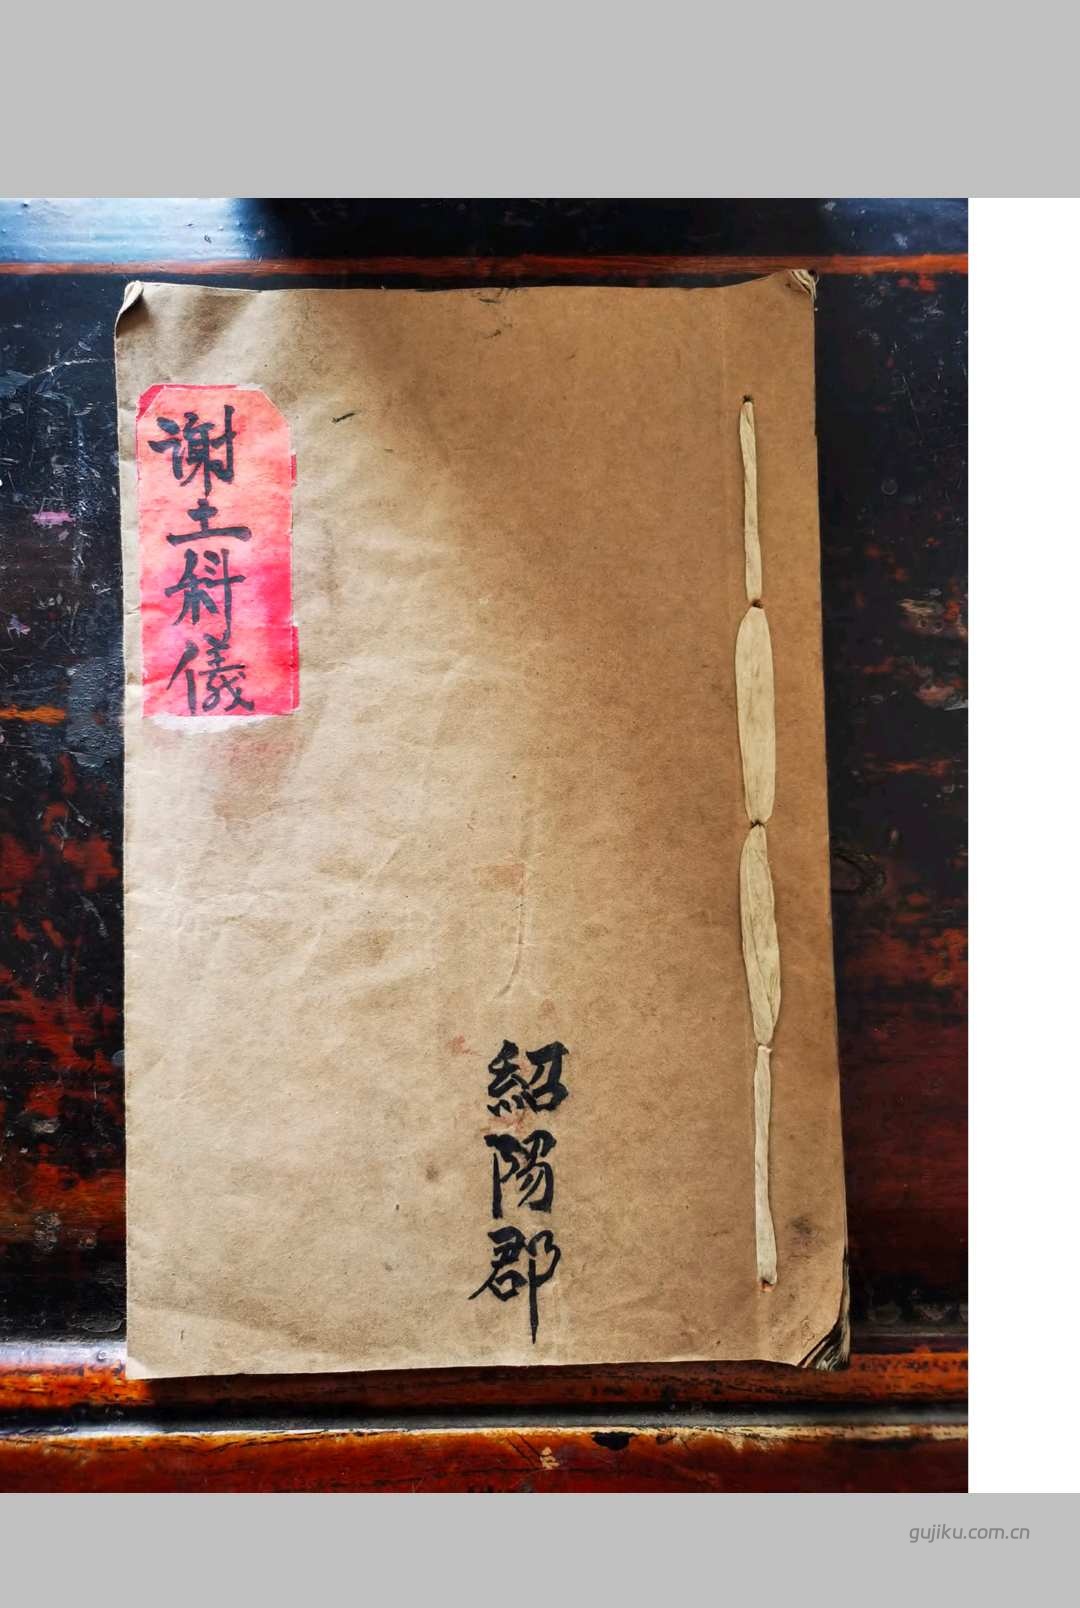 谢土科儀
紹陽郡
gujiku.com.cn